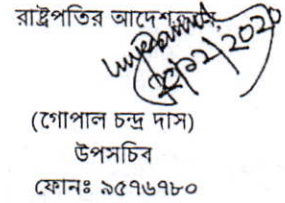 রাষ্ট্রপতির আদেশক্রমে
২০/১২/২০২০
(গোপাল চন্দ্র দাস)
উপসচিব
ফোনঃ ৯৫৭৬৭৮০